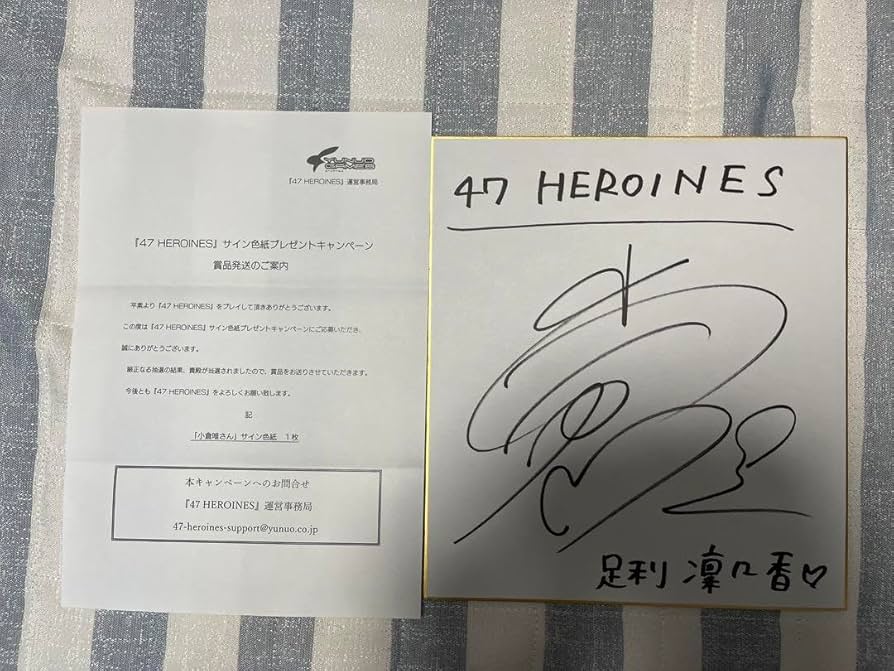 YUNUO
GAMES
『47 HEROINES』運営事務局
『47 HEROINES』サイン色紙プレゼントキャンペーン
賞品発送のご案内
平素より『47 HEROINES』をプレイして頂きありがとうございます。
この度は『47 HEROINES』サイン色紙プレゼントキャンペーンにご応募いただき、
誠にありがとうございます。
厳正なる抽選の結果、貴殿が当選されましたので、賞品をお送りさせていただきます。
今後とも『47 HEROINES』をよろしくお願い致します。
記
「小倉唯さん」サイン色紙 1枚
本キャンペーンへのお問合せ
『47 HEROINES』運営事務局
47-heroines-support@yunuo.co.jp
47 HEROINES
足利 凜乃香♡